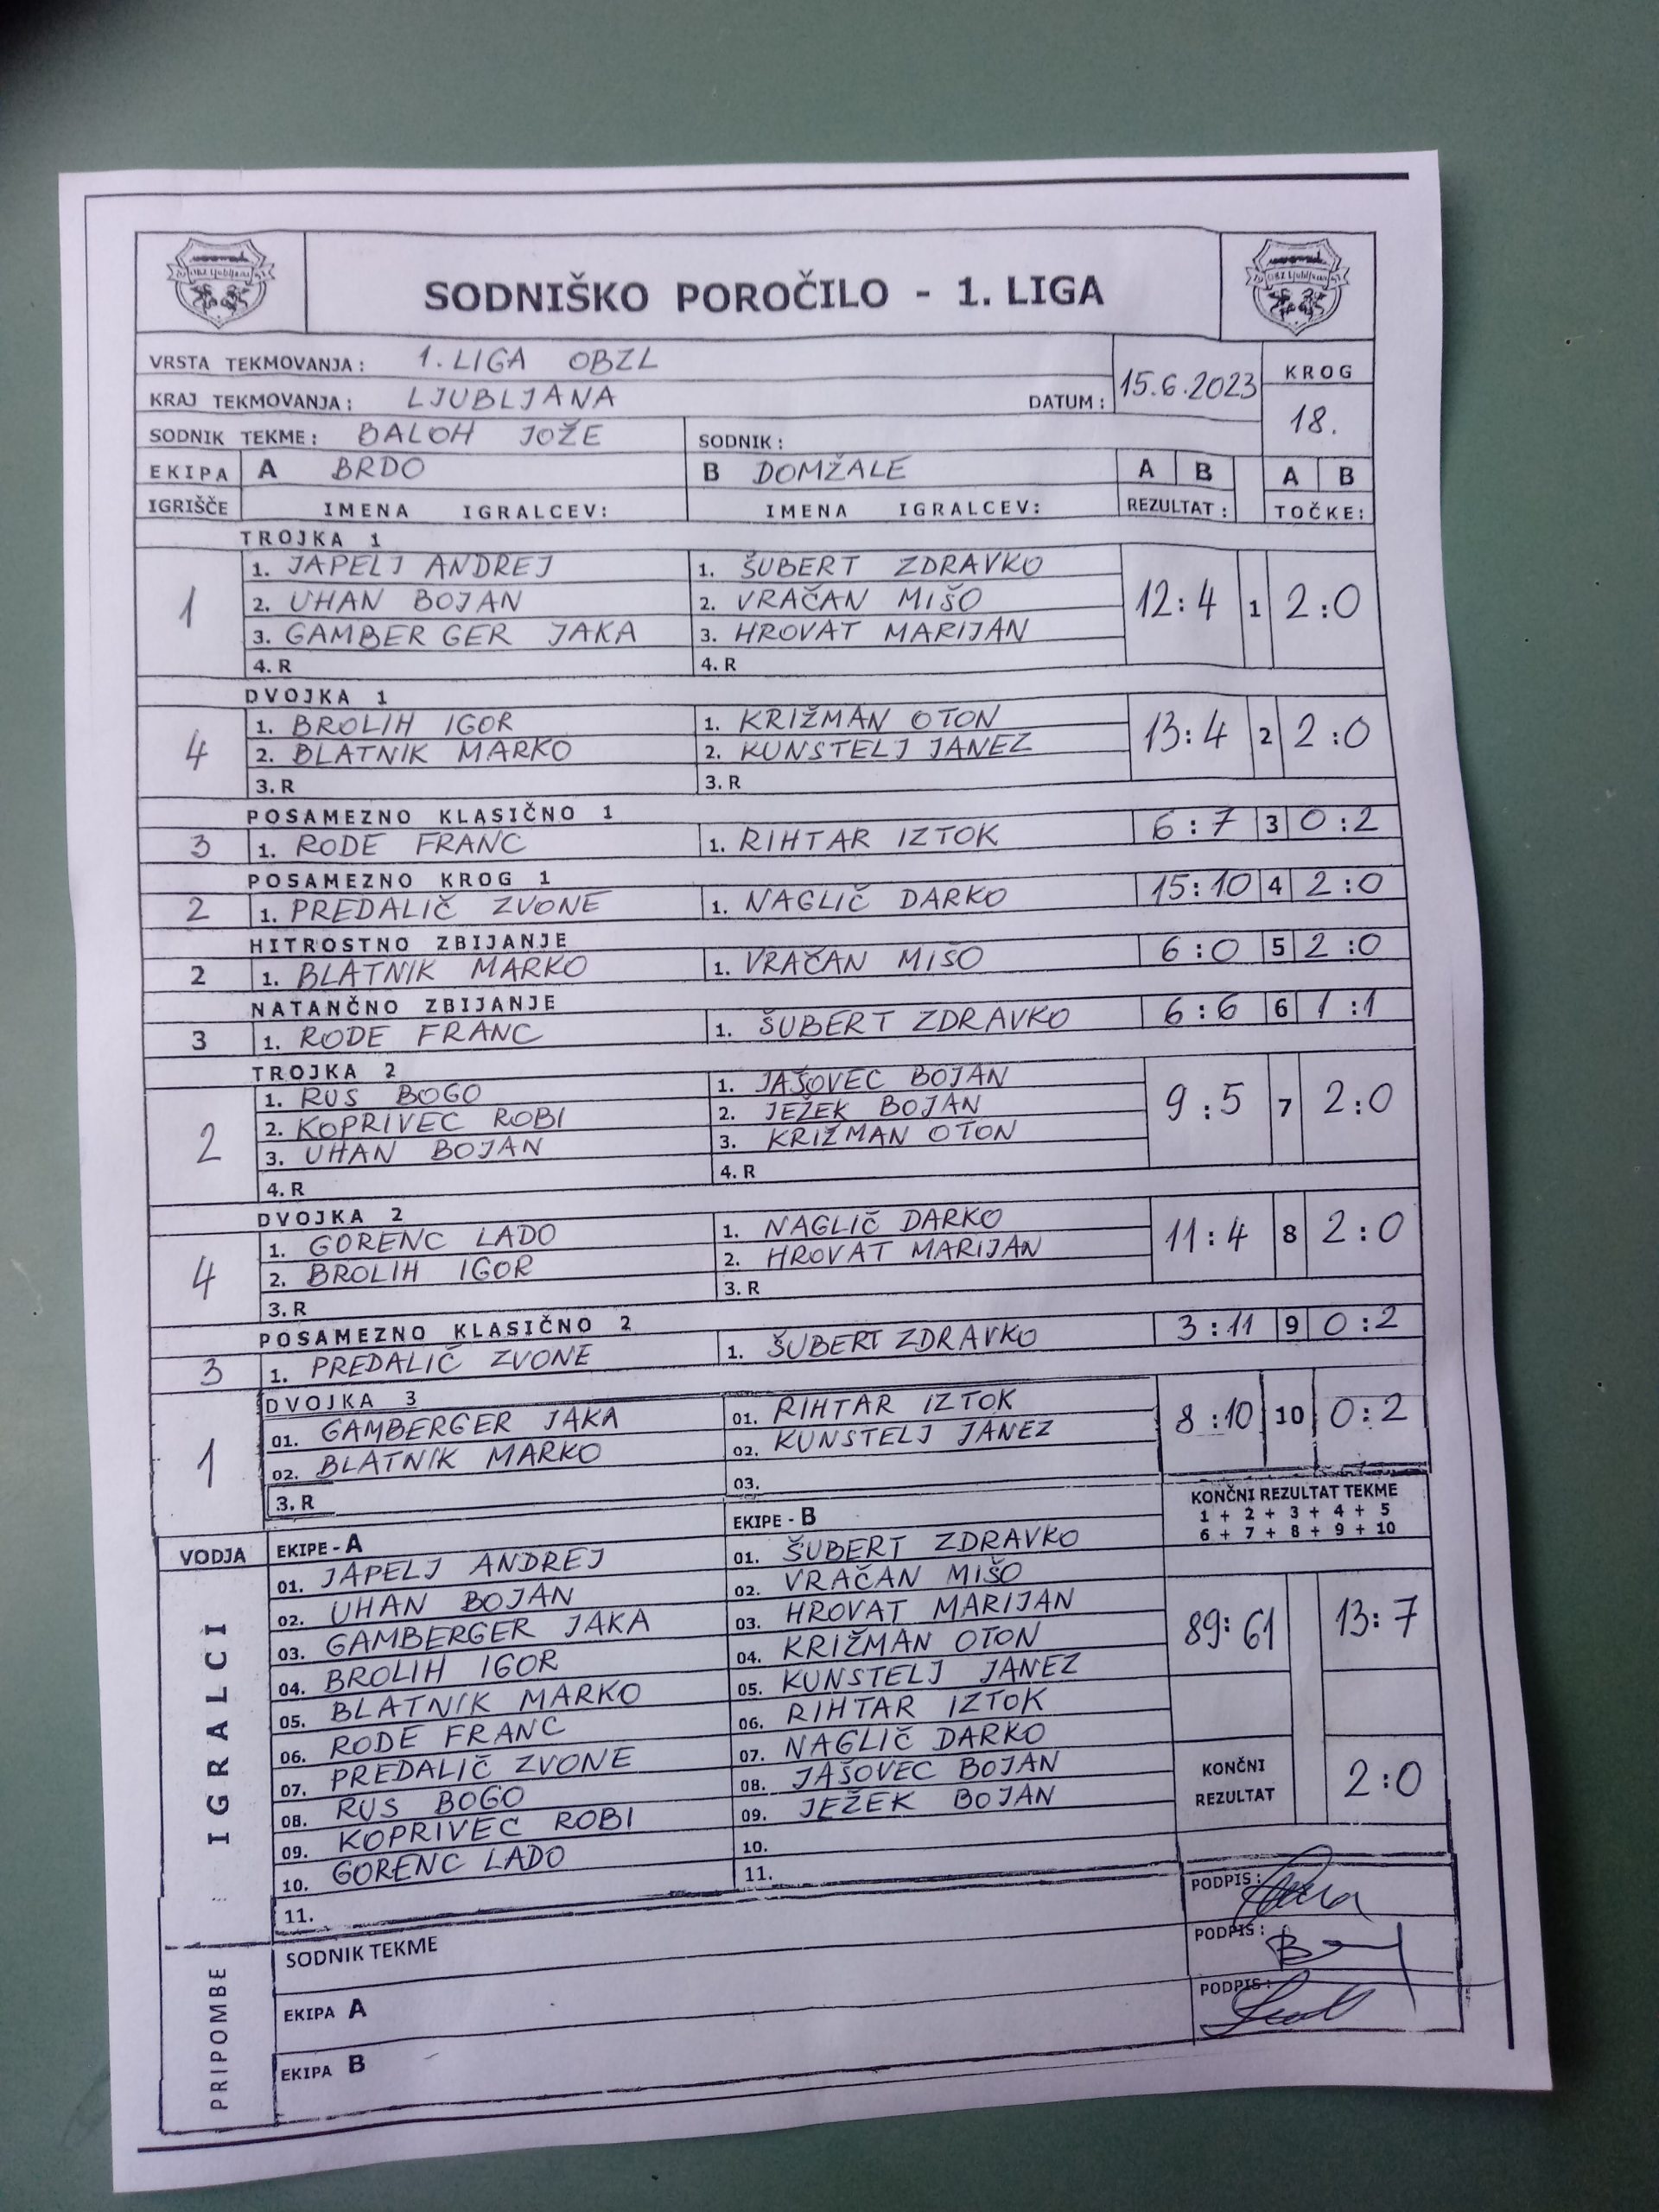 SODNIŠKO POROČILO - 1. LIGA
VRSTA TEKMOVANJA: 1. LIGA OBZL
KRAJ TEKMOVANJA: LJUBLJANA DATUM: 15.6.2023 KROG
SODNIK TEKME: BALOH JOŽE SODNIK: 18.
EKIPA A BRDO B DOMŽALE A B A B
IGRIŠČE IMENA IGRALCEV: IMENA IGRALCEV: REZULTAT: TOČKE:
TROJKA 1
1 1. JAPELJ ANDREJ 1. ŠUBERT ZDRAVKO 12:4 1 2:0
2. UHAN BOJAN 2. VRAČAN MIŠO
3. GAMBERGER JAKA 3. HROVAT MARIJAN
4. R 4. R
DVOJKA 1
4 1. BROLIH IGOR 1. KRIŽMAN OTON 13:4 2 2:0
2. BLATNIK MARKO 2. KUNSTELJ JANEZ
3. R 3. R
POSAMEZNO KLASIČNO 1
3 1. RODE FRANC 1. RIHTAR IZTOK 6:7 3 0:2
POSAMEZNO KROG 1
2 1. PREDALIČ ZVONE 1. NAGLIČ DARKO 15:10 4 2:0
HITROSTNO ZBIJANJE
2 1. BLATNIK MARKO 1. VRAČAN MIŠO 6:0 5 2:0
NATANČNO ZBIJANJE
3 1. RODE FRANC 1. ŠUBERT ZDRAVKO 6:6 6 1:1
TROJKA 2
2 1. RUS BOGO 1. JAŠOVEC BOJAN 9:5 7 2:0
2. KOPRIVEC ROBI 2. JEŽEK BOJAN
3. UHAN BOJAN 3. KRIŽMAN OTON
4. R 4. R
DVOJKA 2
4 1. GORENC LADO 1. NAGLIČ DARKO 11:4 8 2:0
2. BROLIH IGOR 2. HROVAT MARIJAN
3. R 3. R
POSAMEZNO KLASIČNO 2
3 1. PREDALIČ ZVONE 1. ŠUBERT ZDRAVKO 3:11 9 0:2
DVOJKA 3
1 01. GAMBERGER JAKA 01. RIHTAR IZTOK 8:10 10 0:2
02. BLATNIK MARKO 02. KUNSTELJ JANEZ
3. R 03.
KONČNI REZULTAT TEKME
1 + 2 + 3 + 4 + 5
6 + 7 + 8 + 9 + 10
VODJA EKIPE - A EKIPE - B
IGRALCI
01. JAPELJ ANDREJ 01. ŠUBERT ZDRAVKO
02. UHAN BOJAN 02. VRAČAN MIŠO
03. GAMBERGER JAKA 03. HROVAT MARIJAN 89:61 13:7
04. BROLIH IGOR 04. KRIŽMAN OTON
05. BLATNIK MARKO 05. KUNSTELJ JANEZ
06. RODE FRANC 06. RIHTAR IZTOK
07. PREDALIČ ZVONE 07. NAGLIČ DARKO
08. RUS BOGO 08. JAŠOVEC BOJAN KONČNI REZULTAT 2:0
09. KOPRIVEC ROBI 09. JEŽEK BOJAN
10. GORENC LADO 10.
11. 11.
PRIPOMBE
SODNIK TEKME PODPIS:
EKIPA A PODPIS:
EKIPA B PODPIS: